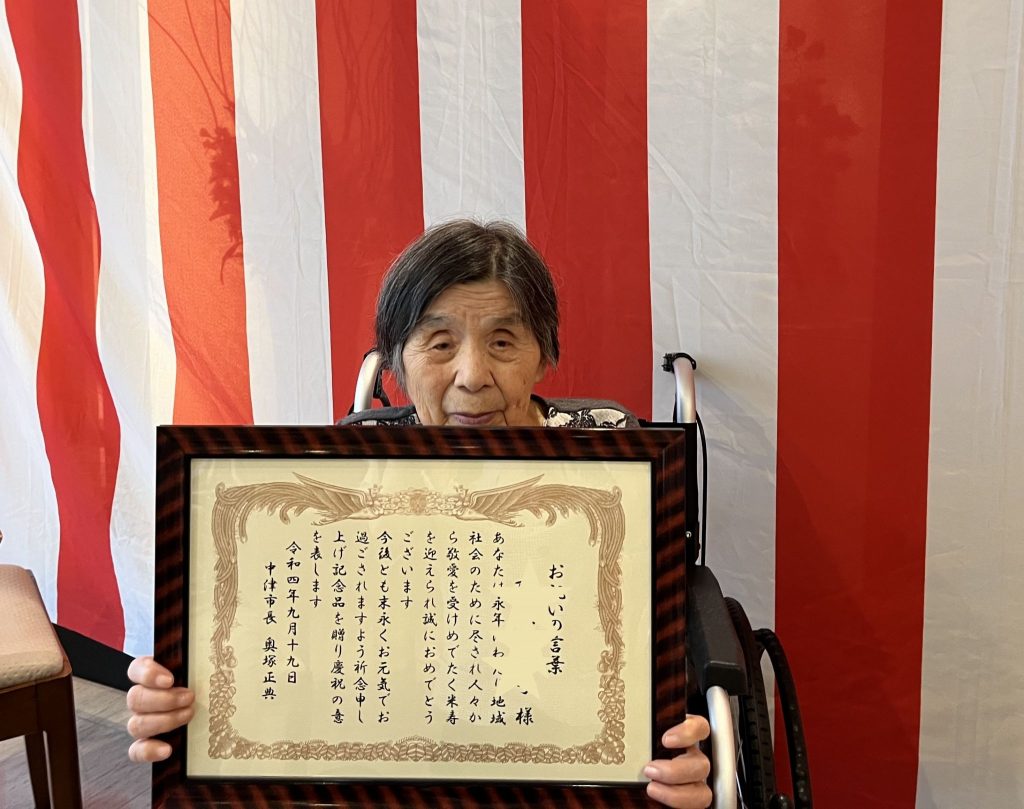 お祝いの言葉
様
あなたは永年にわたり地域
社会のために尽され人々か
ら敬愛を受けめでたく米寿
を迎えられ誠におめでとう
ございます
今後とも末永くお元気でお
過ごされますよう祈念申し
上げ記念品を贈り慶祝の意
を表します
令和四年九月十九日
中津市長 奥塚正典